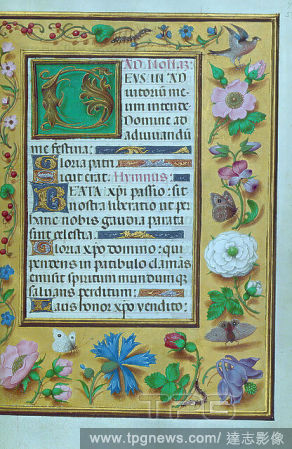 AD NONAS
DEVS IN AD
iutoriu me
um intende
Domine ad
adiuuandū
me festina:
Gloria patri
Sicut erat. Hymnus:
BEATA xp̄i passio: sit
nostra liberatio ut per
hanc nobis gaudia parata
sint celestia.
Gloria xpo domino: qui
pendens in patibulo clamās
emisit spiritum mundum q̄
saluans perditum:
Laus honor xpo vendito:
TPG
www.tpgnews.com / 達志影像